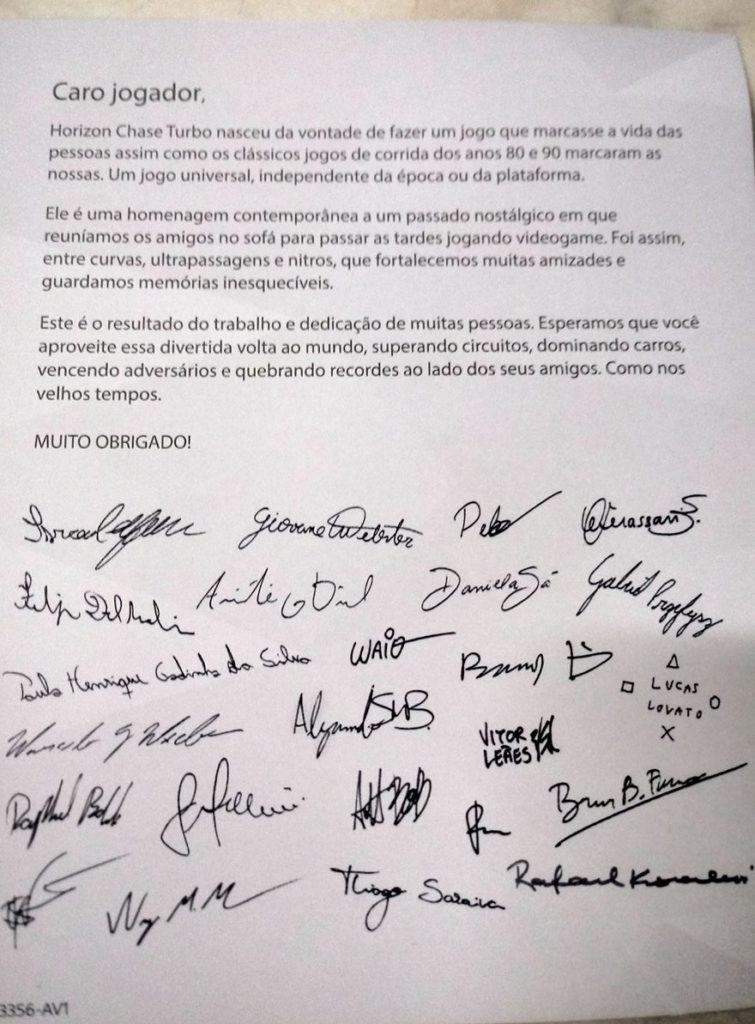 Caro jogador,
Horizon Chase Turbo nasceu da vontade de fazer um jogo que marcasse a vida das
pessoas assim como os clássicos jogos de corrida dos anos 80 e 90 marcaram as
nossas. Um jogo universal, independente da época ou da plataforma.
Ele é uma homenagem contemporânea a um passado nostálgico em que
reuníamos os amigos no sofá para passar as tardes jogando videogame. Foi assim,
entre curvas, ultrapassagens e nitros, que fortalecemos muitas amizades e
guardamos memórias inesquecíveis.
Este é o resultado do trabalho e dedicação de muitas pessoas. Esperamos que você
aproveite essa divertida volta ao mundo, superando circuitos, dominando carros,
vencendo adversários e quebrando recordes ao lado dos seus amigos. Como nos
velhos tempos.
MUITO OBRIGADO!
Giovane Webster
Daniela Sá
Paulo Henrique Godinho da Silva
LUCAS
LOVATO
VITOR
LERES
Bruno B.
Thiago Saraiva
Rafael
3356-AV1